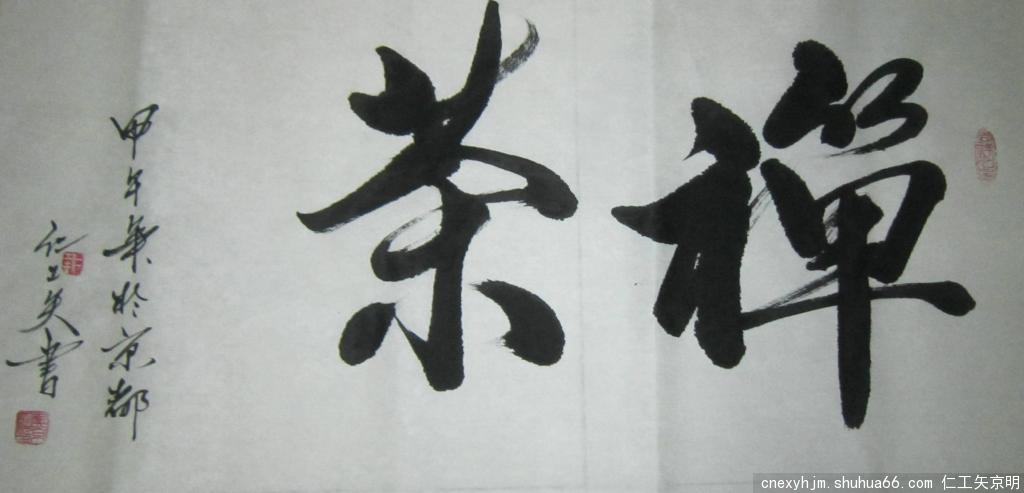 禪茶
甲午年於京都
仁工矢書
cnexyhjm.shuhua66.com 仁工矢京明